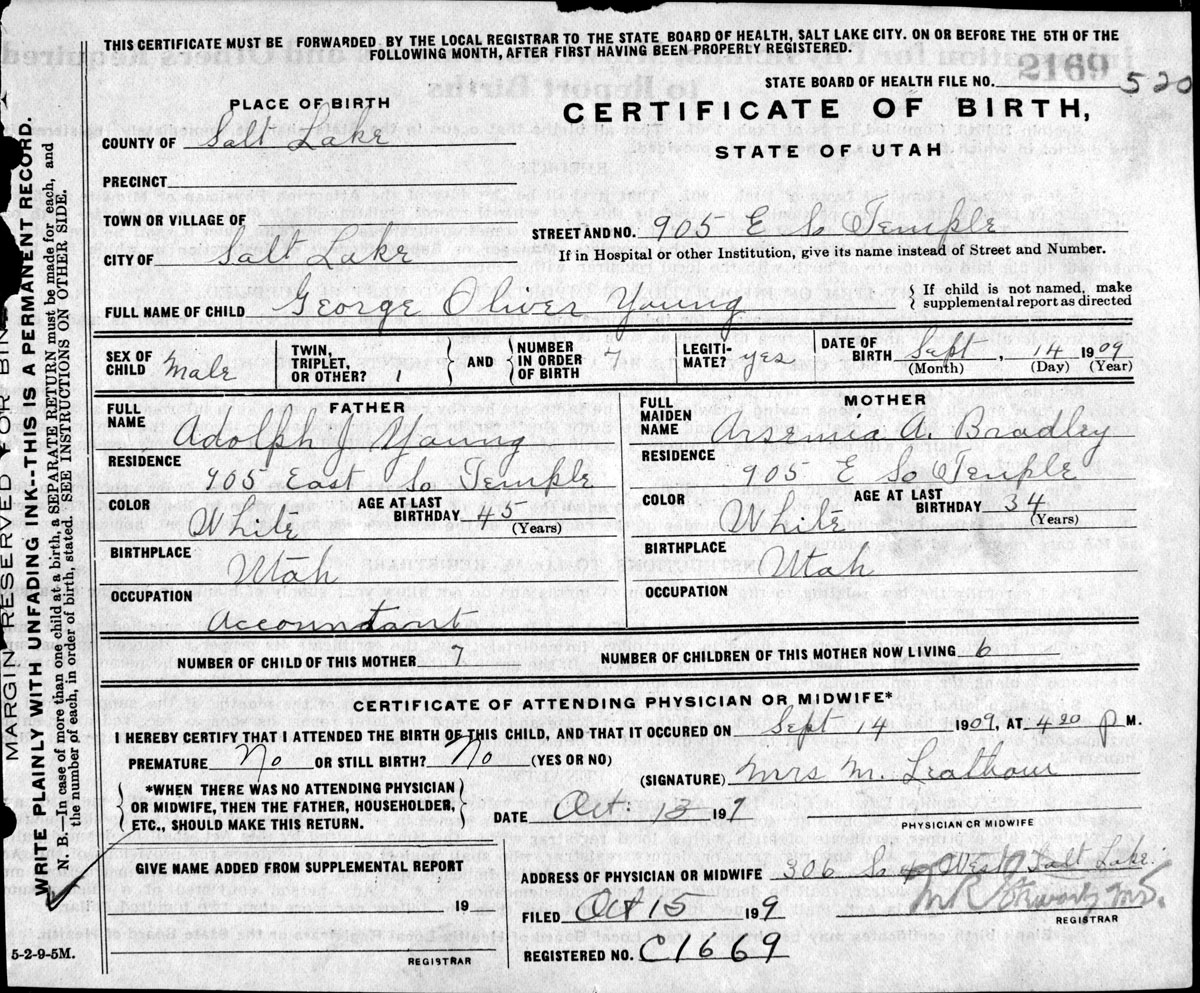 THIS CERTIFICATE MUST BE FORWARDED BY THE LOCAL REGISTRAR TO THE STATE BOARD OF HEALTH, SALT LAKE CITY. ON OR BEFORE THE 5TH OF THE
FOLLOWING MONTH, AFTER FIRST HAVING BEEN PROPERLY REGISTERED.
STATE BOARD OF HEALTH FILE NO. 520
PLACE OF BIRTH
CERTIFICATE OF BIRTH,
STATE OF UTAH
COUNTY OF Salt Lake
PRECINCT
TOWN OR VILLAGE OF
STREET AND NO. 905 E So Temple
CITY OF Salt Lake
If in Hospital or other Institution, give its name instead of Street and Number.
FULL NAME OF CHILD George Oliver Young
{ If child is not named, make
supplemental report as directed
SEX OF CHILD Male
TWIN, TRIPLET, OR OTHER? 1
} AND {
NUMBER IN ORDER OF BIRTH 7
LEGITIMATE? yes
DATE OF BIRTH Sept, 14 1909
(Month) (Day) (Year)
FATHER
FULL NAME Adolph J Young
RESIDENCE
905 East So Temple
COLOR White AGE AT LAST BIRTHDAY 45 (Years)
BIRTHPLACE
Utah
OCCUPATION
Accountant
MOTHER
FULL MAIDEN NAME Arsemia A. Bradley
RESIDENCE
905 E So Temple
COLOR White AGE AT LAST BIRTHDAY 34 (Years)
BIRTHPLACE
Utah
OCCUPATION
NUMBER OF CHILD OF THIS MOTHER 7 NUMBER OF CHILDREN OF THIS MOTHER NOW LIVING 6
CERTIFICATE OF ATTENDING PHYSICIAN OR MIDWIFE*
I HEREBY CERTIFY THAT I ATTENDED THE BIRTH OF THIS CHILD, AND THAT IT OCCURED ON Sept 14 1909, AT 4 20 P M.
PREMATURE No OR STILL BIRTH? No (YES OR NO)
(SIGNATURE) Mrs M.
*WHEN THERE WAS NO ATTENDING PHYSICIAN
OR MIDWIFE, THEN THE FATHER, HOUSEHOLDER,
ETC., SHOULD MAKE THIS RETURN.
DATE Oct. 13 199
PHYSICIAN OR MIDWIFE
GIVE NAME ADDED FROM SUPPLEMENTAL REPORT
19
REGISTRAR
ADDRESS OF PHYSICIAN OR MIDWIFE 306 So 4 West Salt Lake
FILED Oct 15 199
REGISTRAR
REGISTERED NO. C1669
5-2-9-5M.
MARGIN RESERVED FOR BIN
WRITE PLAINLY WITH UNFADING INK--THIS IS A PERMANENT RECORD.
N. B.—In case of more than one child at a birth, a SEPARATE RETURN must be made for each, and
the number of each, in order of birth, stated. SEE INSTRUCTIONS ON OTHER SIDE.